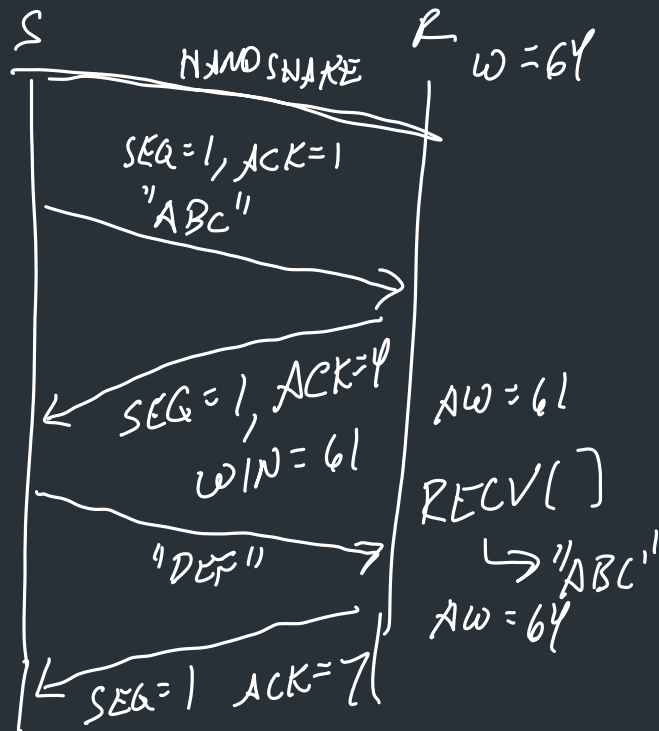 S
R
W = 64
HANDSHAKE
SEQ = 1, ACK = 1
"ABC"
SEQ = 1, ACK = 4
WIN = 61
AW = 61
RECV()
↳ "ABC"
"DEF"
AW = 64
SEQ = 1 ACK = 7